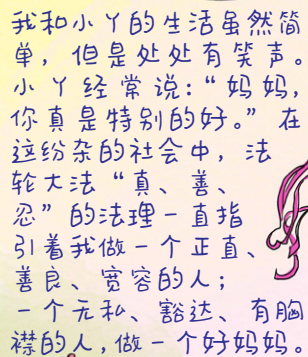 我和小丫的生活虽然简
单，但是处处有笑声。
小丫经常说：“妈妈，
你真是特别的好。”在
这纷杂的社会中，法
轮大法“真、善、
忍”的法理一直指
引着我做一个正直、
善良、宽容的人；
一个无私、豁达、有胸
襟的人，做一个好妈妈。